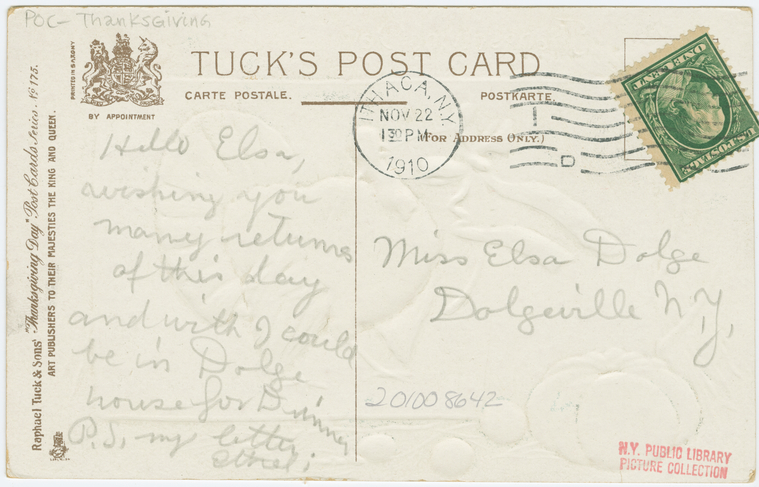 POC - Thanksgiving
PRINTED IN SAXONY
BY APPOINTMENT
TUCK'S POST CARD
CARTE POSTALE.
POSTKARTE.
(FOR ADDRESS ONLY.)
ITHACA, N.Y.
NOV 22
1 30 PM
1910
D
U.S. POSTAGE
ONE CENT
Raphael Tuck & Sons' "Thanksgiving Day" Post Cards Series. No 175.
ART PUBLISHERS TO THEIR MAJESTIES THE KING AND QUEEN.
Hello Elsa,
wishing you
many returns
of this day
and with I could
be in Dolge
house for Dinner
P.S. my letter
Ethel
Miss Elsa Dolge
Dolgeville N.Y.
201008642
N.Y. PUBLIC LIBRARY
PICTURE COLLECTION